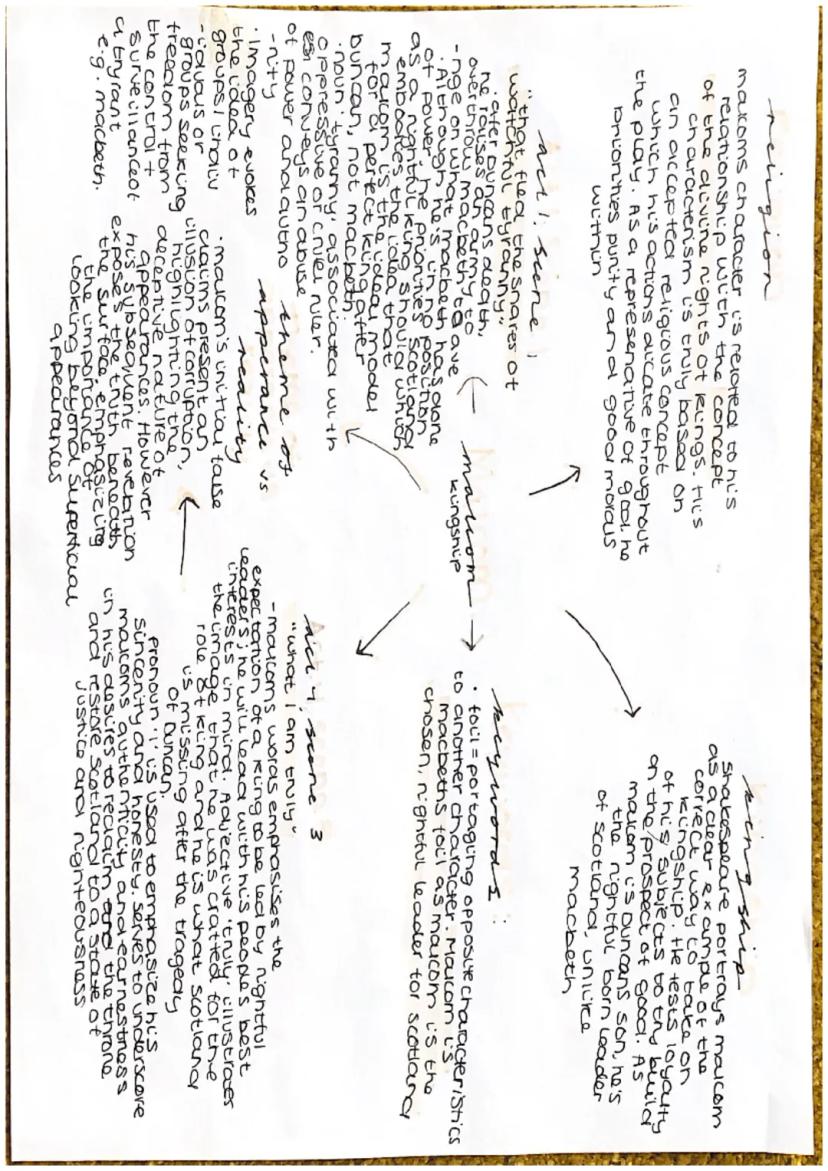 religion
malcoms character is related to his
relationship with the concept
of the divine rights of kings. His
characterism is truly based on
an accepted religious concept
which his actions dicate throughout
the play. As a represenative of god, he
priorities purity and good morals
within
kingship
Shakespeare portrays malcom
as a clear example of the
correct way to take on
kingship. He tests loyalty
of his subjects to try build
on the prospect of good. As
malcom is Duncan's son, he's
the rightful born leader
of Scotland, unlike
macbeth
malcom
kingship
Act 1, scene 1
"that fled the snares of
watchful tyranny"
· after Duncans death,
he raises an army to
overthrow macbeth to ave
-nge on what macbeth has done
· Although he's in no position
of power, he priorities Scotland
as a rightful king should which
embodies the idea that
malcom is the ideal model
for a perfect king after
Duncan, not macbeth.
· noun 'tyranny' associated with
oppressive or cruel ruler.
esi conveys an abuse
of power and autho
-rity
· Imagery evokes
the idea of
groups / indiv
-iduals or
groups seeking
freedom from
the control +
surveillance of
a tyrant
e.g. macbeth.
keywords:
· foil = portraging opposite characteristics
to another character. Malcom is
macbeths foil as malcom is the
chosen, rightful leader for scotland
theme of
apperance vs
reality
· malcom's initial false
claims present an
illusion of corruption,
highlighting the
deceptive nature of
appearances. However
his subsequent revelation
exposes the truth beneath
the surface, emphasizing
the importance of
looking beyond superficial
appearances
Act 4, scene 3
"what I am truly"
- malcoms words emphasises the
expectation of a king to be led by rightful
leaders; he will lead with his people's best
interests in mind. Adjective 'truly' illustrates
the image that he was crafted for the
role of king and he is what scotland
is missing after the tragedy
of Duncan.
pronoun 'I' is used to emphasize his
sincerity and honesty. Serves to underscore
malcoms authenticity and earnestness
in his desires to reclaim and the throne
and restore Scotland to a state of
justice and righteousness